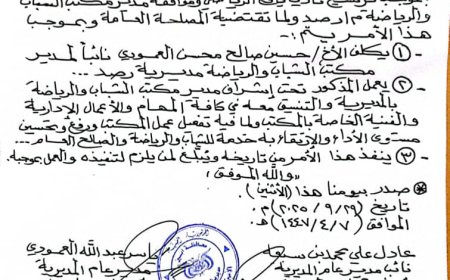 بموجب ترشيح نادي الرياضي وموافقة مدير مكتب الشباب
والرياضة م/رصد ولما تقتضية المصلحة العامة وبموجب
هذا الأمر يتم :-
① يكلف الأخ / حسين صالح محسن العمودي نائباً لمدير
مكتب الشباب والرياضة مديرية رصد ...
② يعمل المذكور تحت إشراف مدير مكتب الشباب والرياضة
بالمديرية والتنسق معه في كافة المهام والأعمال الإدارية
والفنية الخاصة بالمكتب ولما فيه تفعيل عمل المكتب ورفع وتحسين
مستوى الأداء والإرتقاء به خدمة للشباب والرياضة والصالح العام ...
③ ينفذ هذا الأمر من تاريخه ويبلغ لمن يلزم لتنفيذه والعمل بموجبه.
والله الموفق ،،
صدر بيومنا هذا (الأثنين)
تاريخ (٢٩ / ٩ / ٢٠٢٥) م.
الموافق (٧ / ٤ / ١٤٤٧) هـ.
عادل علي محمد بن سبعة
نائب مدير عام المديرية
ياسر عبدالله العمودي
مدير عام المديرية